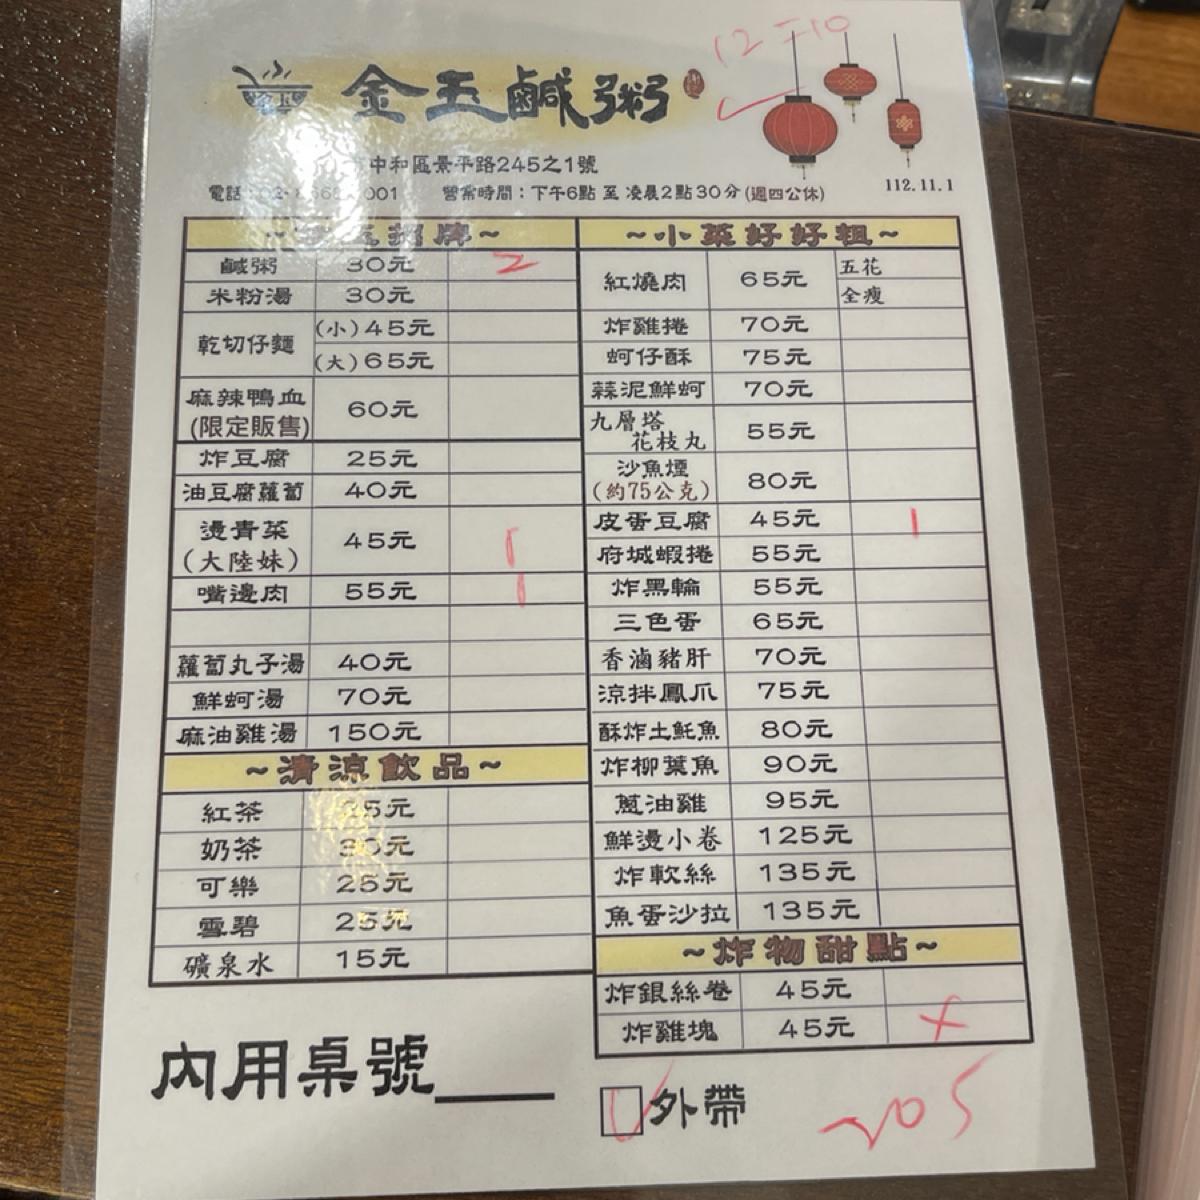 12=10
金玉鹹粥
中和區景平路245之1號
電話 001 營業時間：下午6點 至 凌晨2點30分(週四公休)
112.11.1
招牌~
鹹粥 30元 2
米粉湯 30元
乾切仔麵 (小)45元
(大)65元
麻辣鴨血
(限定販售) 60元
炸豆腐 25元
油豆腐蘿蔔 40元
燙青菜
(大陸妹) 45元 1
嘴邊肉 55元 1
蘿蔔丸子湯 40元
鮮蚵湯 70元
麻油雞湯 150元
~清涼飲品~
紅茶 25元
奶茶 30元
可樂 25元
雪碧 25元
礦泉水 15元
內用桌號
~小菜好好粗~
紅燒肉 65元 五花
全瘦
炸雞捲 70元
蚵仔酥 75元
蒜泥鮮蚵 70元
九層塔
花枝丸 55元
沙魚煙
(約75公克) 80元
皮蛋豆腐 45元 1
府城蝦捲 55元
炸黑輪 55元
三色蛋 65元
香滷豬肝 70元
涼拌鳳爪 75元
酥炸土魠魚 80元
炸柳葉魚 90元
蔥油雞 95元
鮮燙小卷 125元
炸軟絲 135元
魚蛋沙拉 135元
~炸物甜點~
炸銀絲卷 45元
炸雞塊 45元 x
外帶
205